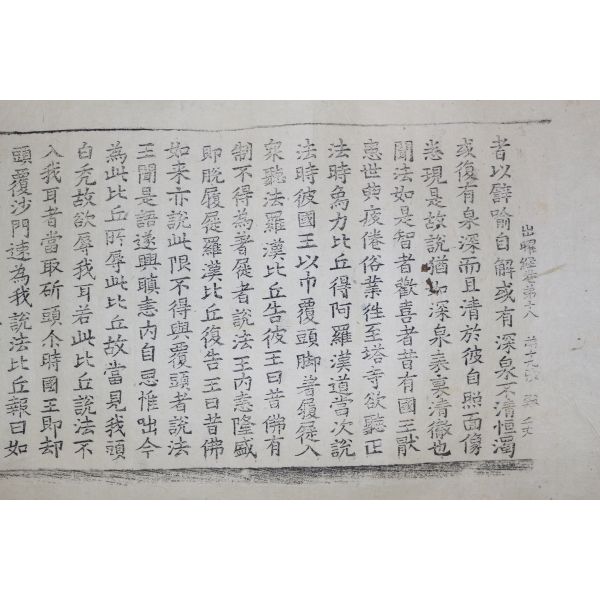 出曜經卷第十八 第十九張
者以譬喻自解或有深泉不清恒濁
或復有泉深而且清於彼自照面像
悉現是故說猶如深泉表裏清徹也
聞法如是智者歡喜者昔有國王獸
患世典疲倦俗業往至塔寺欲聽正
法時烏力比丘得阿羅漢道當次說
法時彼國王以巾覆頭脚著履屣入
衆聽法羅漢比丘告彼王曰昔佛有
制不得為著屣者說法王內恚隆盛
即脫履屣羅漢比丘復告王曰昔佛
如來亦說此限不得與覆頭者說法
王聞是語遂興瞋恚內自思惟咄今
為此比丘所辱此比丘故當見我頭
白禿故欲辱我耳若此比丘說法不
入我耳者當取斫頭尒時國王即却
頭覆沙門速為我說法比丘報曰如